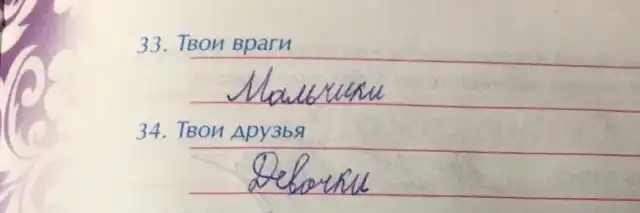 33. Твои враги
Мальчики
34. Твои друзья
Девочки